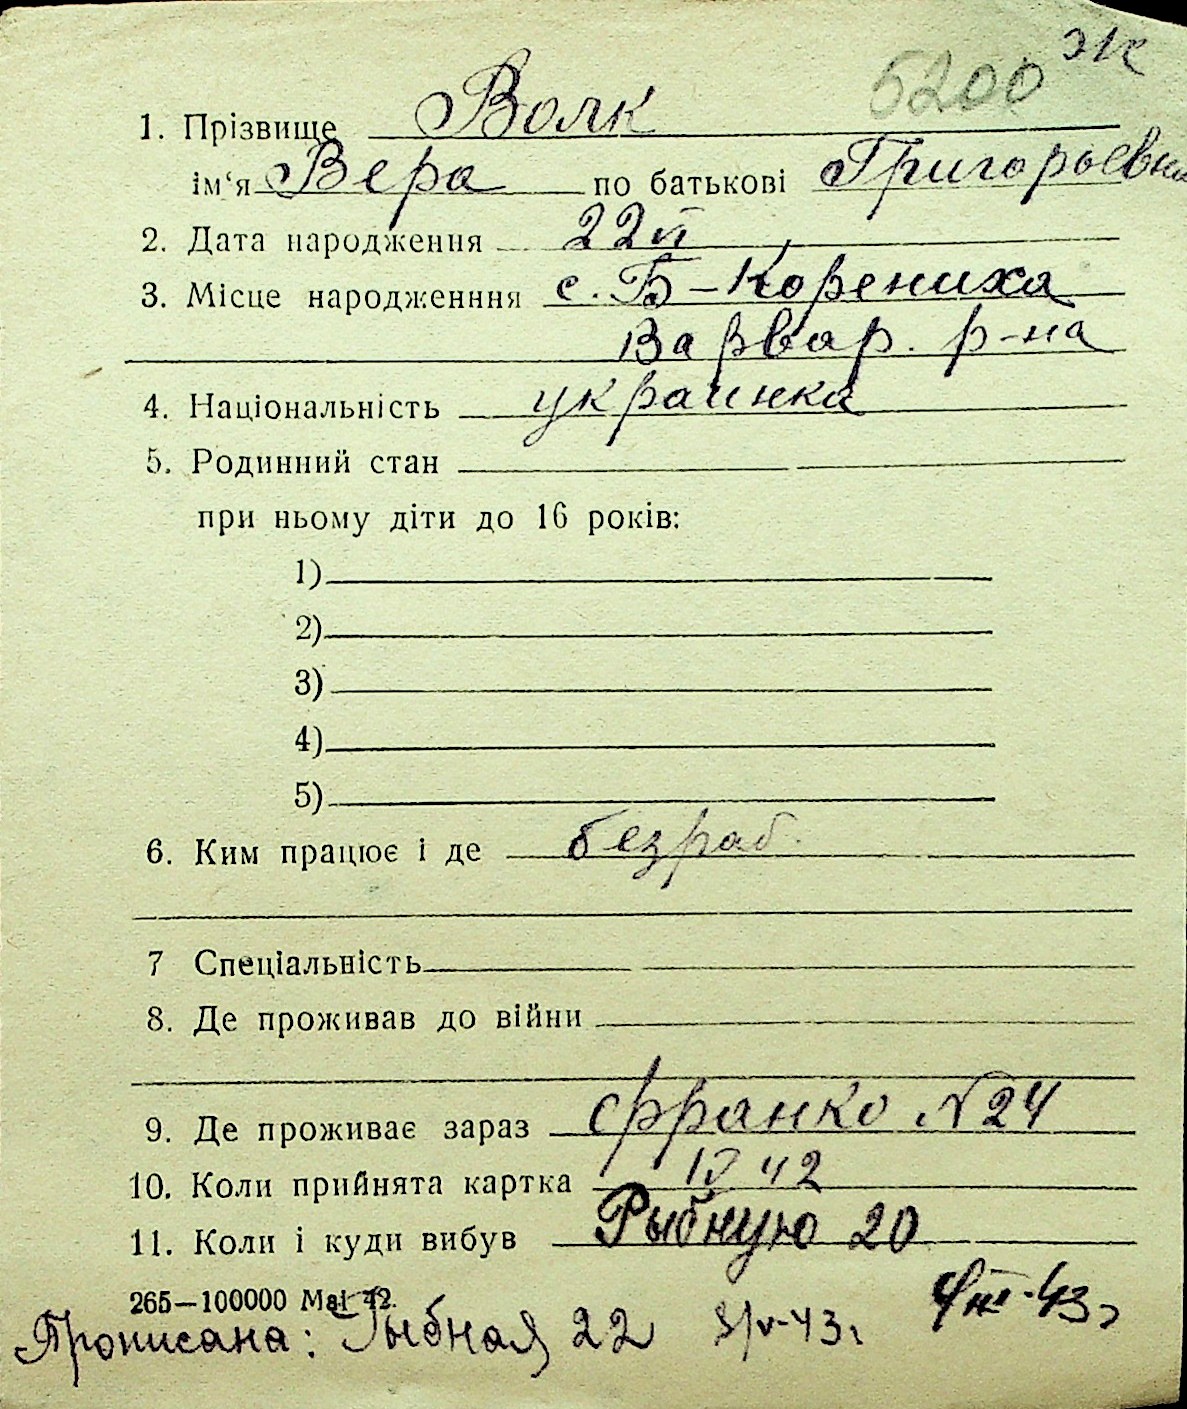 5200 Ж
1. Прізвище Волк
ім'я Вера по батькові Григорьевна
2. Дата народження 22 г
3. Місце народженння с. Б-Корениха
Варвар. р-на
4. Національність украинка
5. Родинний стан
при ньому діти до 16 років:
1)
2)
3)
4)
5)
6. Ким працює і де безраб.
7 Спеціальність
8. Де проживав до війни
9. Де проживає зараз Франко № 24
10. Коли прийнята картка 42
11. Коли і куди вибув Рыбную 20
265—100000 Mai 42.
4/III-43 г
Прописана: Рыбная 22 3/V-43 г